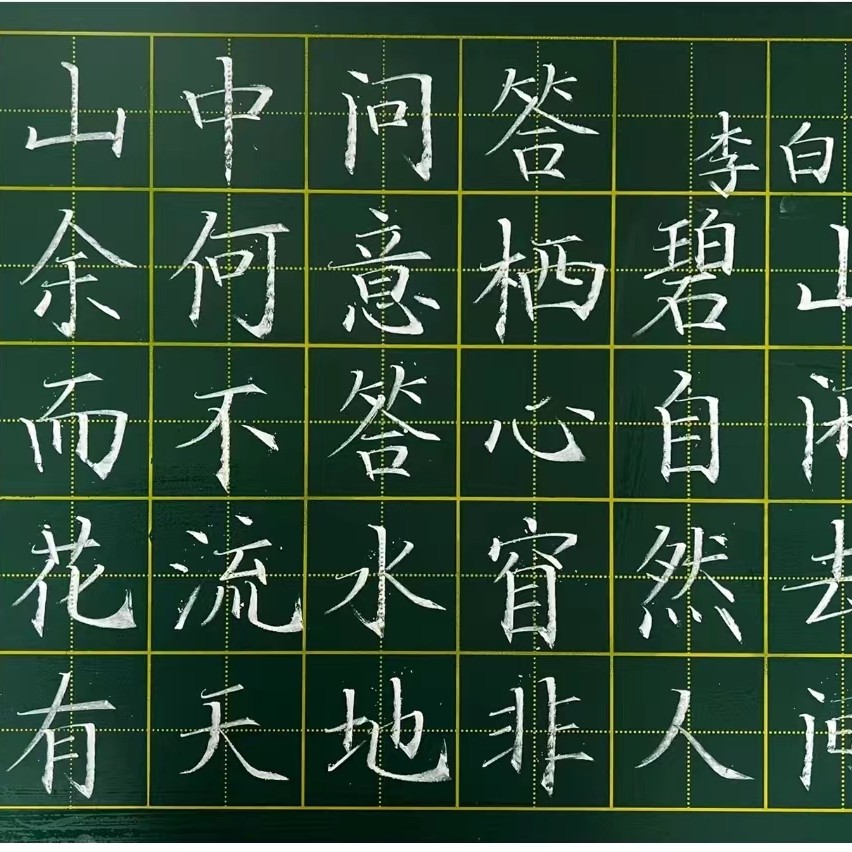 山中问答 李白
余何意栖碧山
而不答心自闲
花流水窅然去
有天地非人间